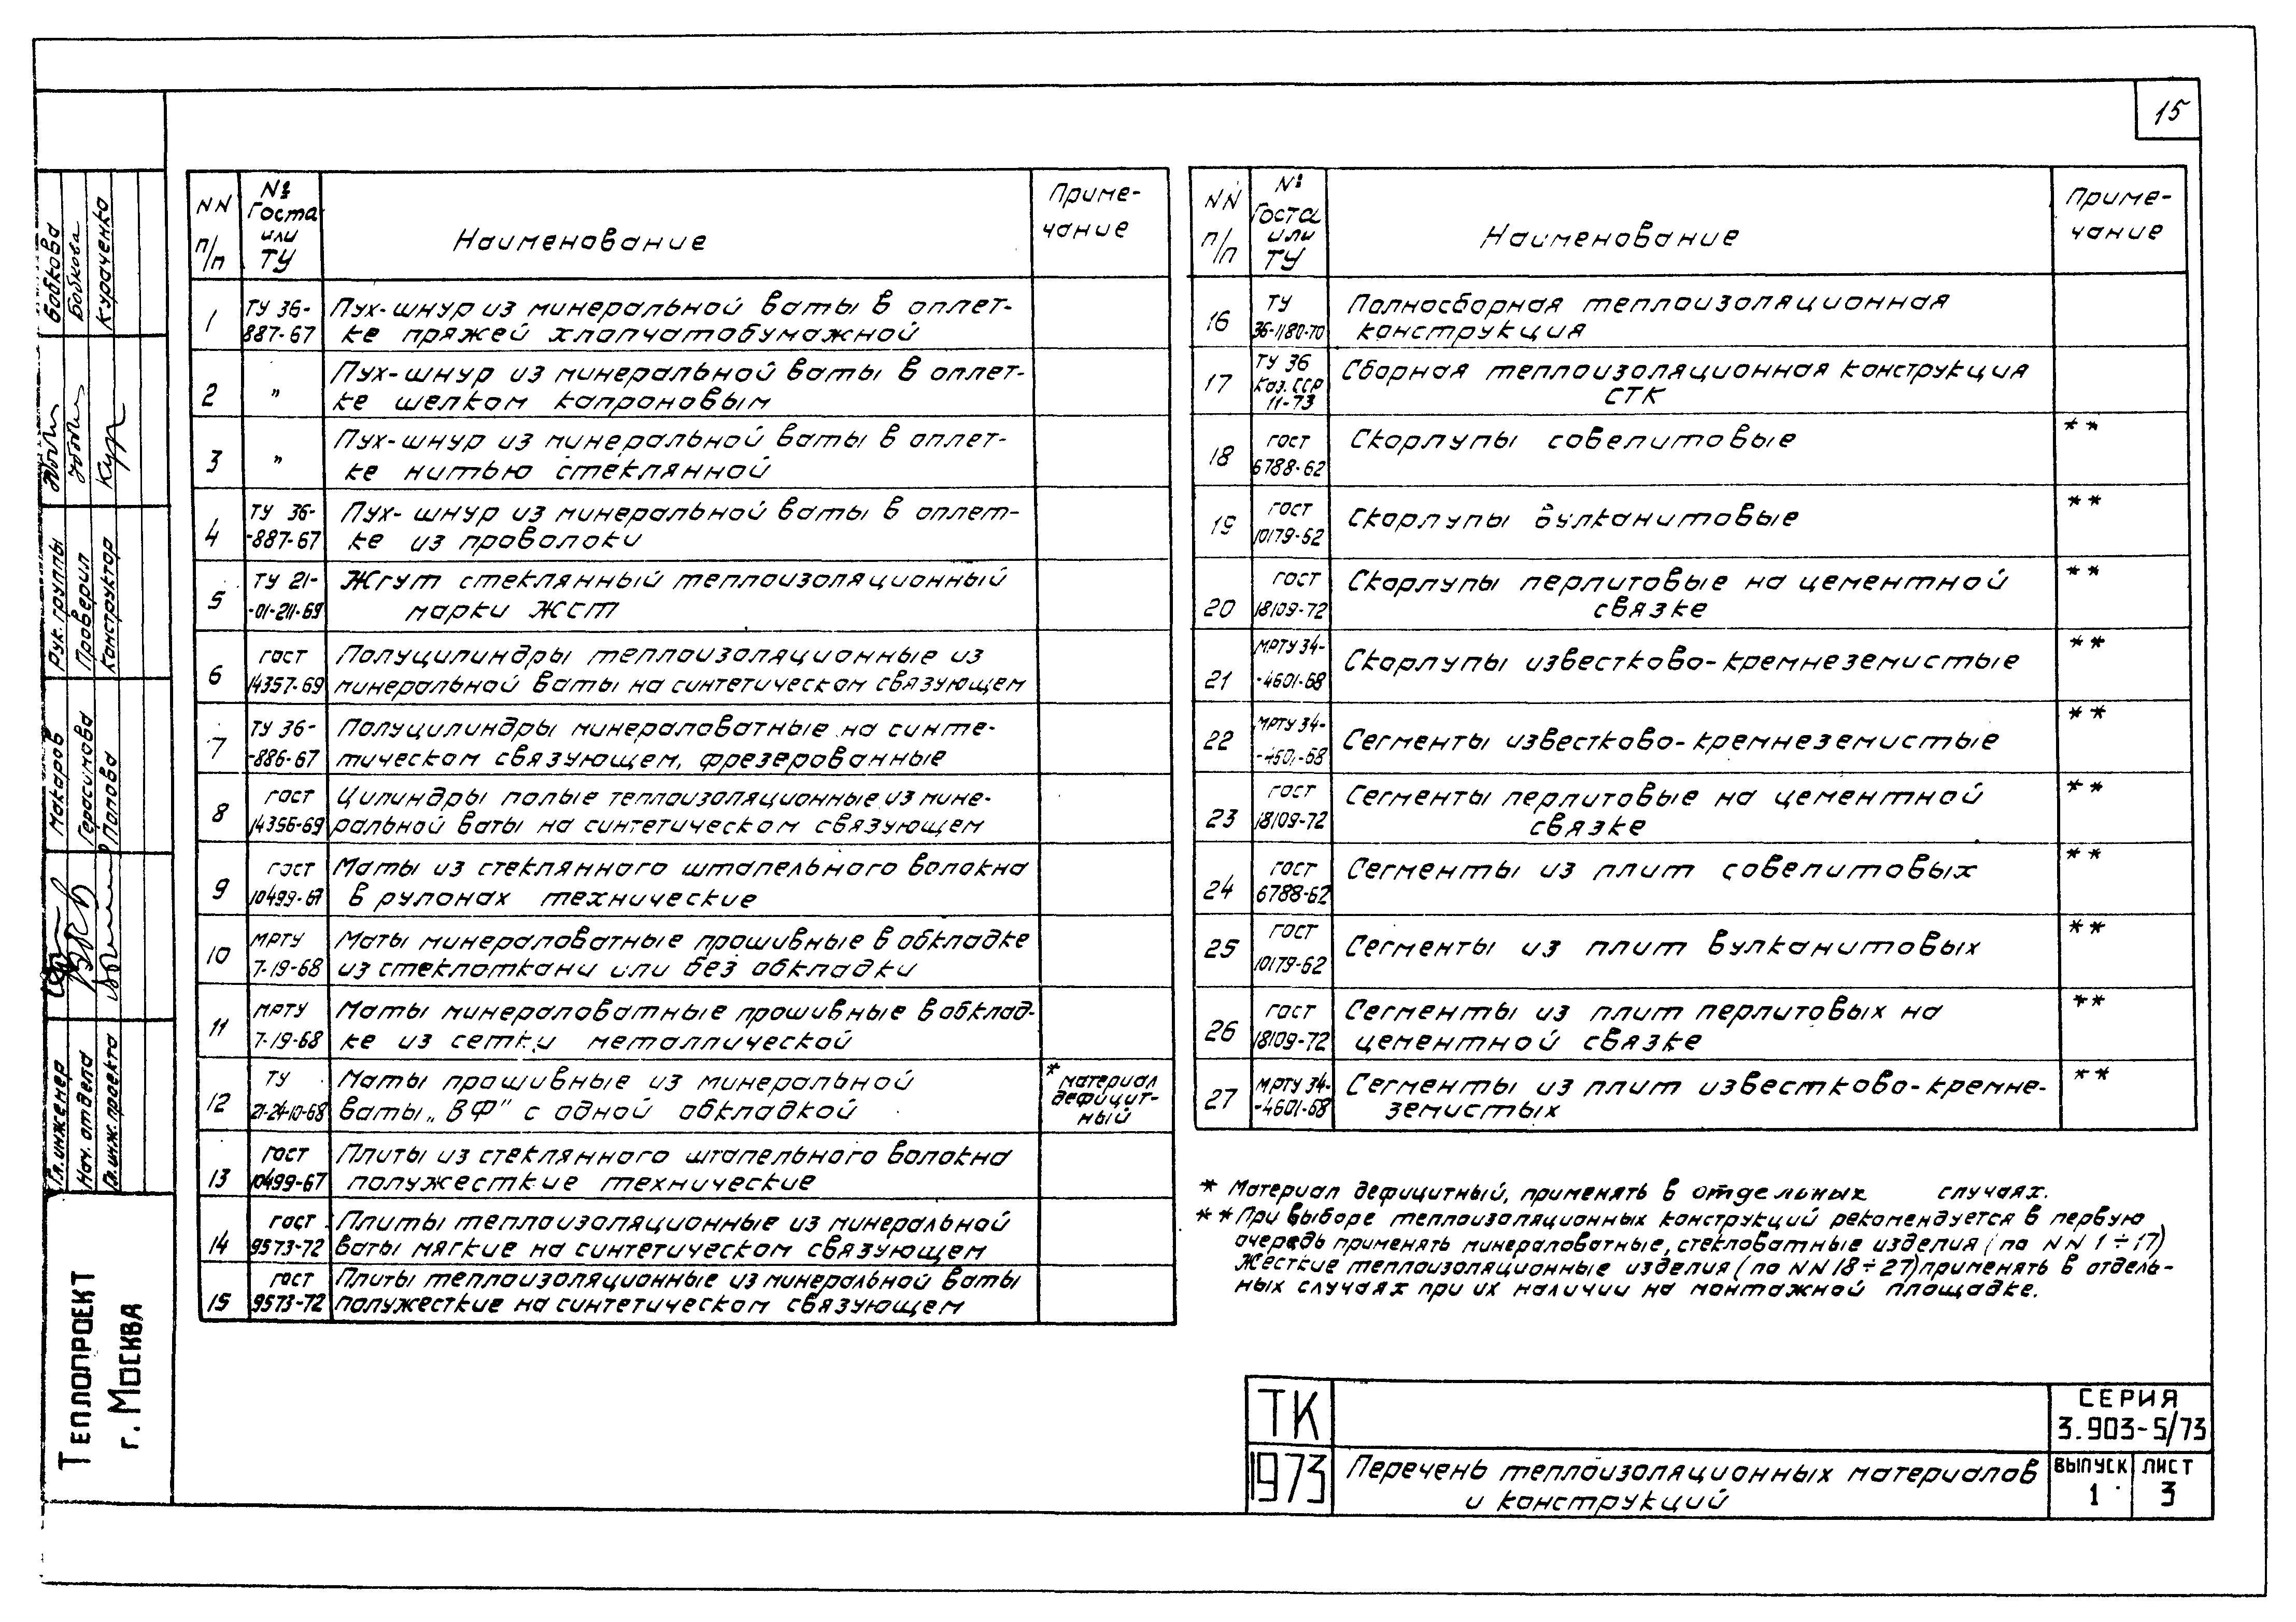 15
NN п/п
№ Госта или ТУ
Наименование
Приме-
чание
1 ТУ 36-887-67 Пух-шнур из минеральной ваты в оплет-
ке пряжей хлопчатобумажной
2 " Пух-шнур из минеральной ваты в оплет-
ке шелком капроновым
3 " Пух-шнур из минеральной ваты в оплет-
ке нитью стеклянной
4 ТУ 36--887-67 Пух-шнур из минеральной ваты в оплет-
ке из проволоки
5 ТУ 21--01-211-69 Жгут стеклянный теплоизоляционный
марки ЖСТ
6 гост 14357-69 Полуцилиндры теплоизоляционные из
минеральной ваты на синтетическом связующем
7 ТУ 36--886-67 Полуцилиндры минераловатные на синте-
тическом связующем, фрезерованные
8 гост 14356-69 Цилиндры полые теплоизоляционные из мине-
ральной ваты на синтетическом связующем
9 гост 10499-67 Маты из стеклянного штапельного волокна
в рулонах технические
10 МРТУ 7-19-68 Маты минераловатные прошивные в обкладке
из стеклоткани или без обкладки
11 МРТУ 7-19-68 Маты минераловатные прошивные в обклад-
ке из сетки металлической
12 ТУ 21-24-10-68 Маты прошивные из минеральной
ваты „ВФ" с одной обкладкой
* материал
дефицит-
ный
13 гост 10499-67 Плиты из стеклянного штапельного волокна
полужесткие технические
14 гост 9573-72 Плиты теплоизоляционные из минеральной
ваты мягкие на синтетическом связующем
15 гост 9573-72 Плиты теплоизоляционные из минеральной ваты
полужесткие на синтетическом связующем
NN п/п
№ Госта или ТУ
Наименование
Приме-
чание
16 ТУ 36-1180-70 Полносборная теплоизоляционная
конструкция
17 ТУ 36 Каз.ССР 11-73 Сборная теплоизоляционная конструкция
СТК
18 гост 6788-62 Скорлупы совелитовые **
19 гост 10179-62 Скорлупы вулканитовые **
20 гост 18109-72 Скорлупы перлитовые на цементной **
связке
21 МРТУ 34--4601-68 Скорлупы известково-кремнеземистые **
22 МРТУ 34--4601-68 Сегменты известково-кремнеземистые **
23 гост 18109-72 Сегменты перлитовые на цементной **
связке
24 гост 6788-62 Сегменты из плит совелитовых **
25 гост 10179-62 Сегменты из плит вулканитовых **
26 гост 18109-72 Сегменты из плит перлитовых на **
цементной связке
27 МРТУ 34--4601-68 Сегменты из плит известково-кремне- **
земистых
* Материал дефицитный, применять в отдельных случаях.
** При выборе теплоизоляционных конструкций рекомендуется в первую
очередь применять минераловатные, стекловатные изделия (по NN 1÷17)
Жесткие теплоизоляционные изделия (по NN 18÷27) применять в отдель-
ных случаях при их наличии на монтажной площадке.
ТК
1973
Перечень теплоизоляционных материалов
и конструкций
СЕРИЯ
3.903-5/73
ВЫПУСК
1
ЛИСТ
3
Теплопроект
г. Москва
Гл. инженер Макаров
Нач. отдела Герасимова
Гл. инж. проекта Попова
Рук. группы Бобкова
Проверил Бобкова
Конструктор Кураченко